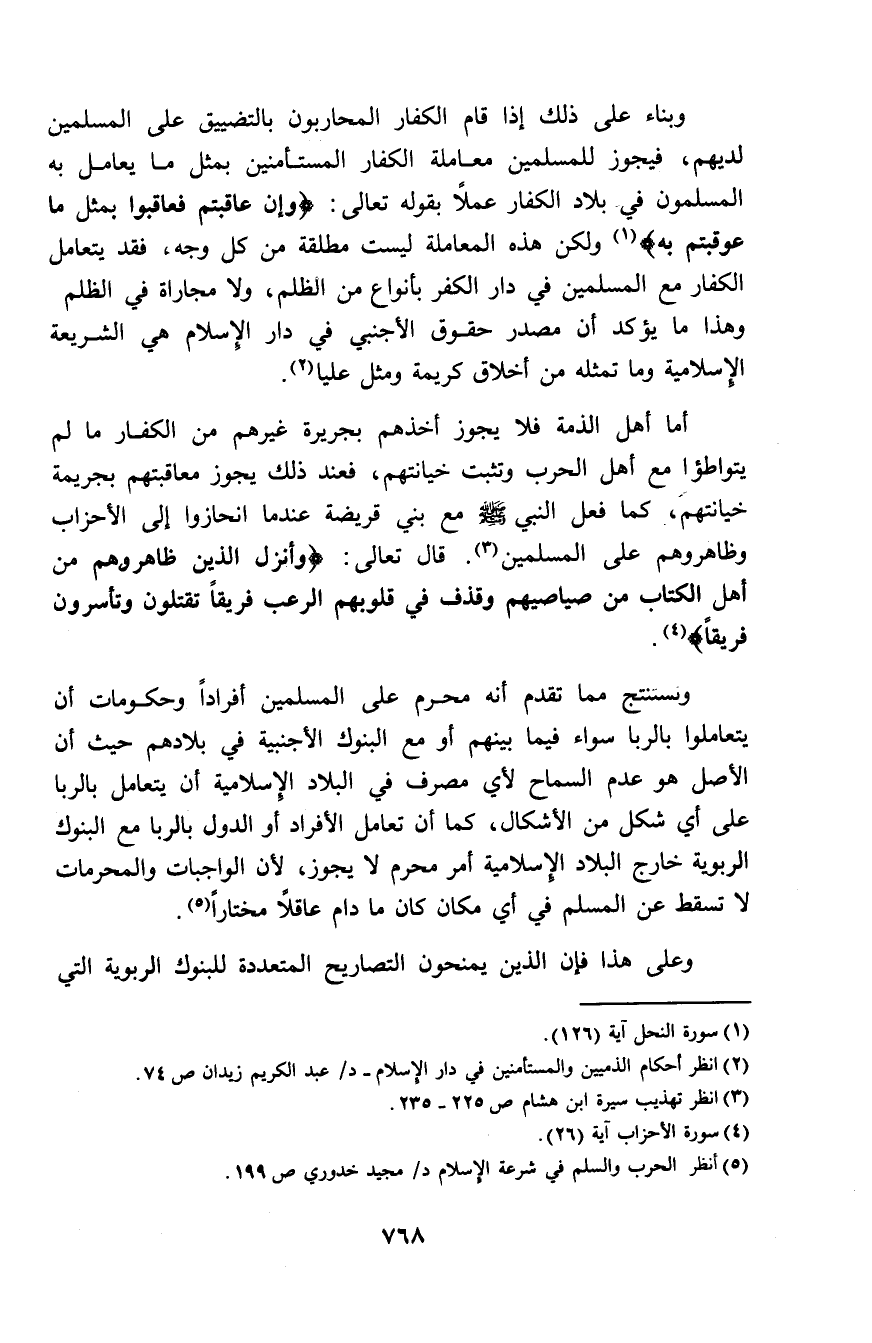 وبناء على ذلك إذا قام الكفار المحاربون بالتضييق على المسلمين
لديهم، فيجوز للمسلمين معاملة الكفار المستأمنين بمثل ما يعامل به
المسلمون في بلاد الكفار عملاً بقوله تعالى: ﴿وإن عاقبتم فعاقبوا بمثل ما
عوقبتم به﴾(١) ولكن هذه المعاملة ليست مطلقة من كل وجه، فقد يتعامل
الكفار مع المسلمين في دار الكفر بأنواع من الظلم، ولا مجاراة في الظلم
وهذا ما يؤكد أن مصدر حقوق الأجنبي في دار الإسلام هي الشريعة
الإسلامية وما تمثله من أخلاق كريمة ومثل عليا(٢).
أما أهل الذمة فلا يجوز أخذهم بجريرة غيرهم من الكفار ما لم
يتواطؤا مع أهل الحرب وتثبت خيانتهم، فعند ذلك يجوز معاقبتهم بجريمة
خيانتهم، كما فعل النبي ﷺ مع بني قريضة عندما انحازوا إلى الأحزاب
وظاهروهم على المسلمين(٣). قال تعالى: ﴿وأنزل الذين ظاهروهم من
أهل الكتاب من صياصيهم وقذف في قلوبهم الرعب فريقاً تقتلون وتأسرون
فريقاً﴾(٤).
ونستنتج مما تقدم أنه محرم على المسلمين أفراداً وحكومات أن
يتعاملوا بالربا سواء فيما بينهم أو مع البنوك الأجنبية في بلادهم حيث أن
الأصل هو عدم السماح لأي مصرف في البلاد الإسلامية أن يتعامل بالربا
على أي شكل من الأشكال، كما أن تعامل الأفراد أو الدول بالربا مع البنوك
الربوية خارج البلاد الإسلامية أمر محرم لا يجوز، لأن الواجبات والمحرمات
لا تسقط عن المسلم في أي مكان كان ما دام عاقلاً مختاراً(٥).
وعلى هذا فإن الذين يمنحون التصاريح المتعددة للبنوك الربوية التي
(١) سورة النحل آية (١٢٦).
(٢) انظر أحكام الذميين والمستأمنين في دار الإسلام ـ د/ عبد الكريم زيدان ص ٧٤.
(٣) انظر تهذيب سيرة ابن هشام ص ٢٢٥ ـ ٢٣٥.
(٤) سورة الأحزاب آية (٢٦).
(٥) أنظر الحرب والسلم في شرعة الإسلام د/ مجيد خدوري ص ١٩٩.
٧٦٨